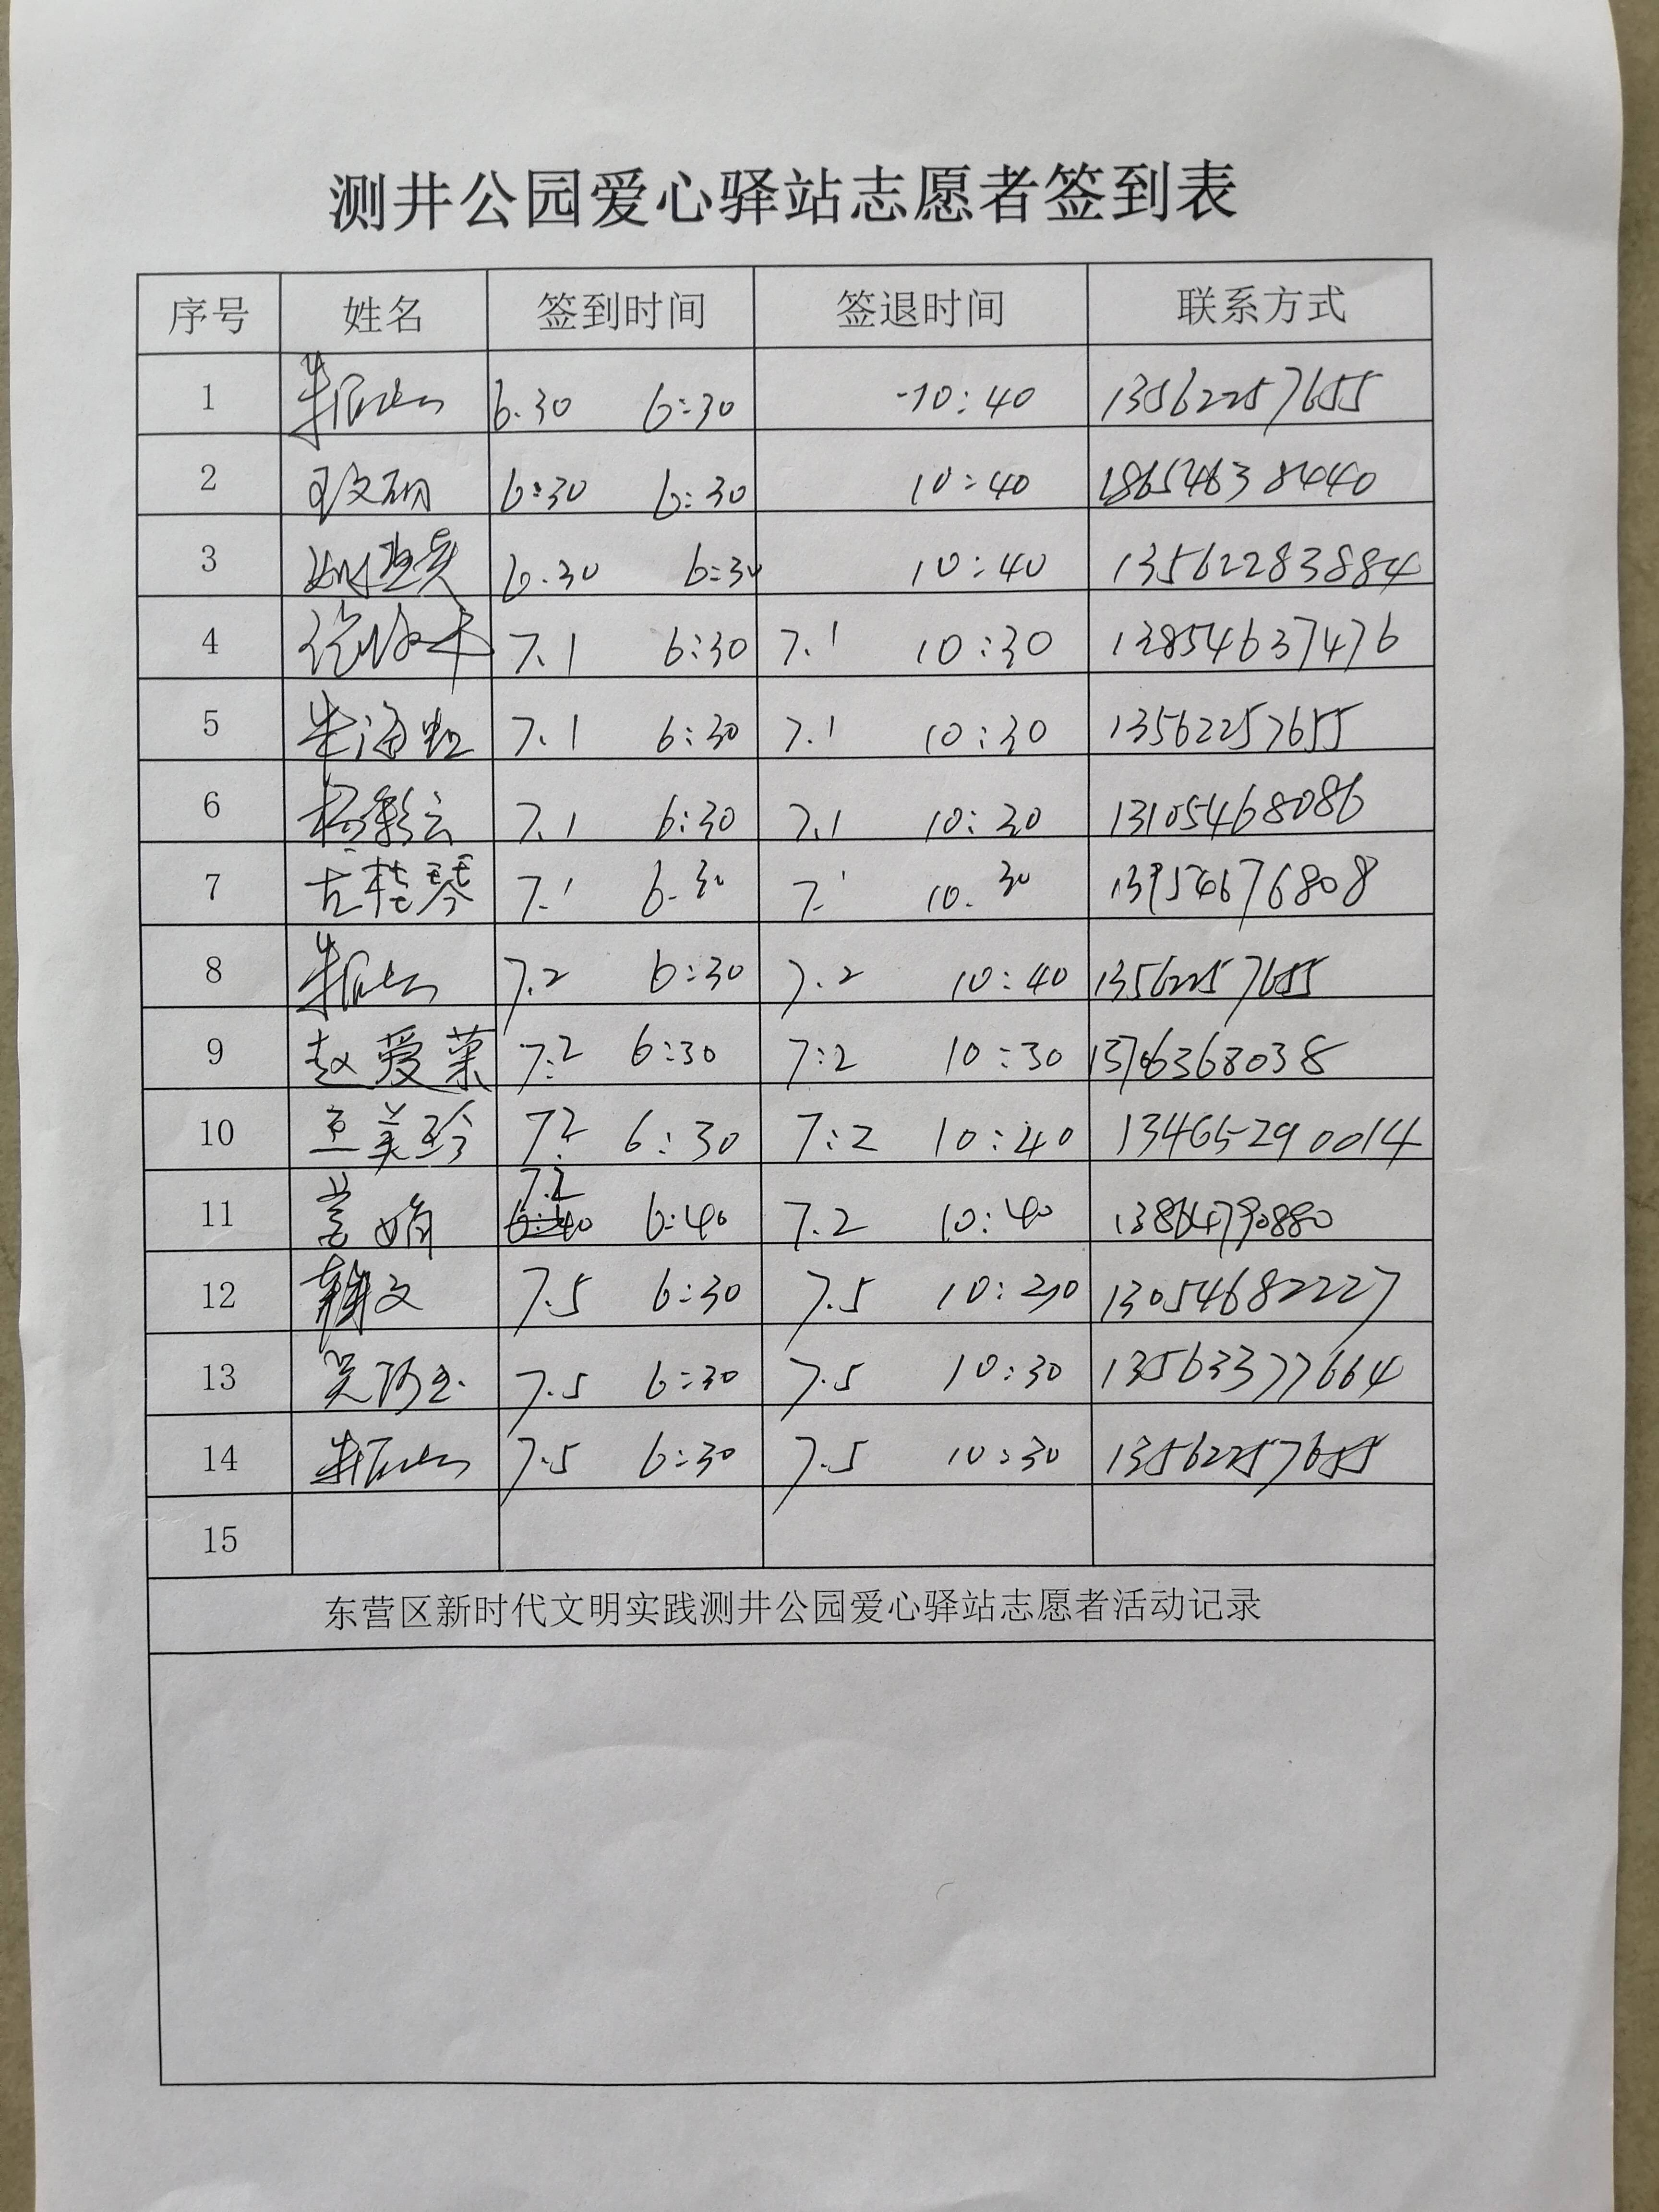 测井公园爱心驿站志愿者签到表
序号 姓名 签到时间 签退时间 联系方式
1 6.30 6:30 10:40 13562257655
2 6:30 6:30 10:40 18654638440
3 6.30 6:30 10:40 13562283884
4 7.1 6:30 7.1 10:30 13854637476
5 朱海虹 7.1 6:30 7.1 10:30 13562257655
6 杨彩云 7.1 6:30 7.1 10:30 13105468086
7 古桂琴 7.1 6.30 7.1 10.30 13954676808
8 7.2 6:30 7.2 10:40 13562257655
9 赵爱菜 7:2 6:30 7:2 10:30 13706368038
10 王美玲 7:2 6:30 7:2 10:40 13465290014
11 7.2 6:40 7.2 10:40 13864790880
12 韩文 7.5 6:30 7.5 10:30 13054682227
13 7.5 6:30 7.5 10:30 13563377664
14 7.5 6:30 7.5 10:30 13562257655
15
东营区新时代文明实践测井公园爱心驿站志愿者活动记录